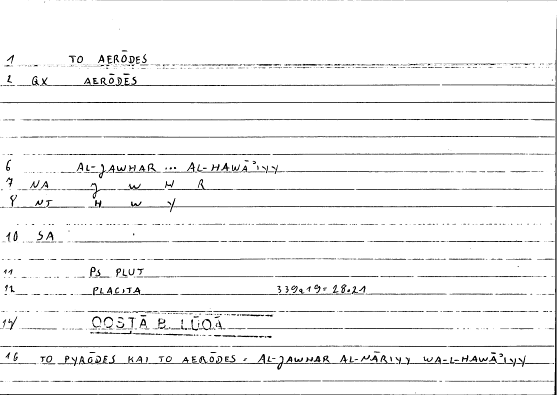 1 TO AERŌDES
2 QX AERŌDĒS
6 AL-JAWHAR ... AL-HAWĀʾIYY
7 NA J W H R
8 NT H W Y
10 SA
11 Ps PLUT
12 PLACITA 339a19=28.21
14 QOSTĀ B LŪQĀ
16 TO PYRŌDES KAI TO AERŌDES = AL-JAWHAR AL-NĀRIYY WA-L-HAWĀʾIYY